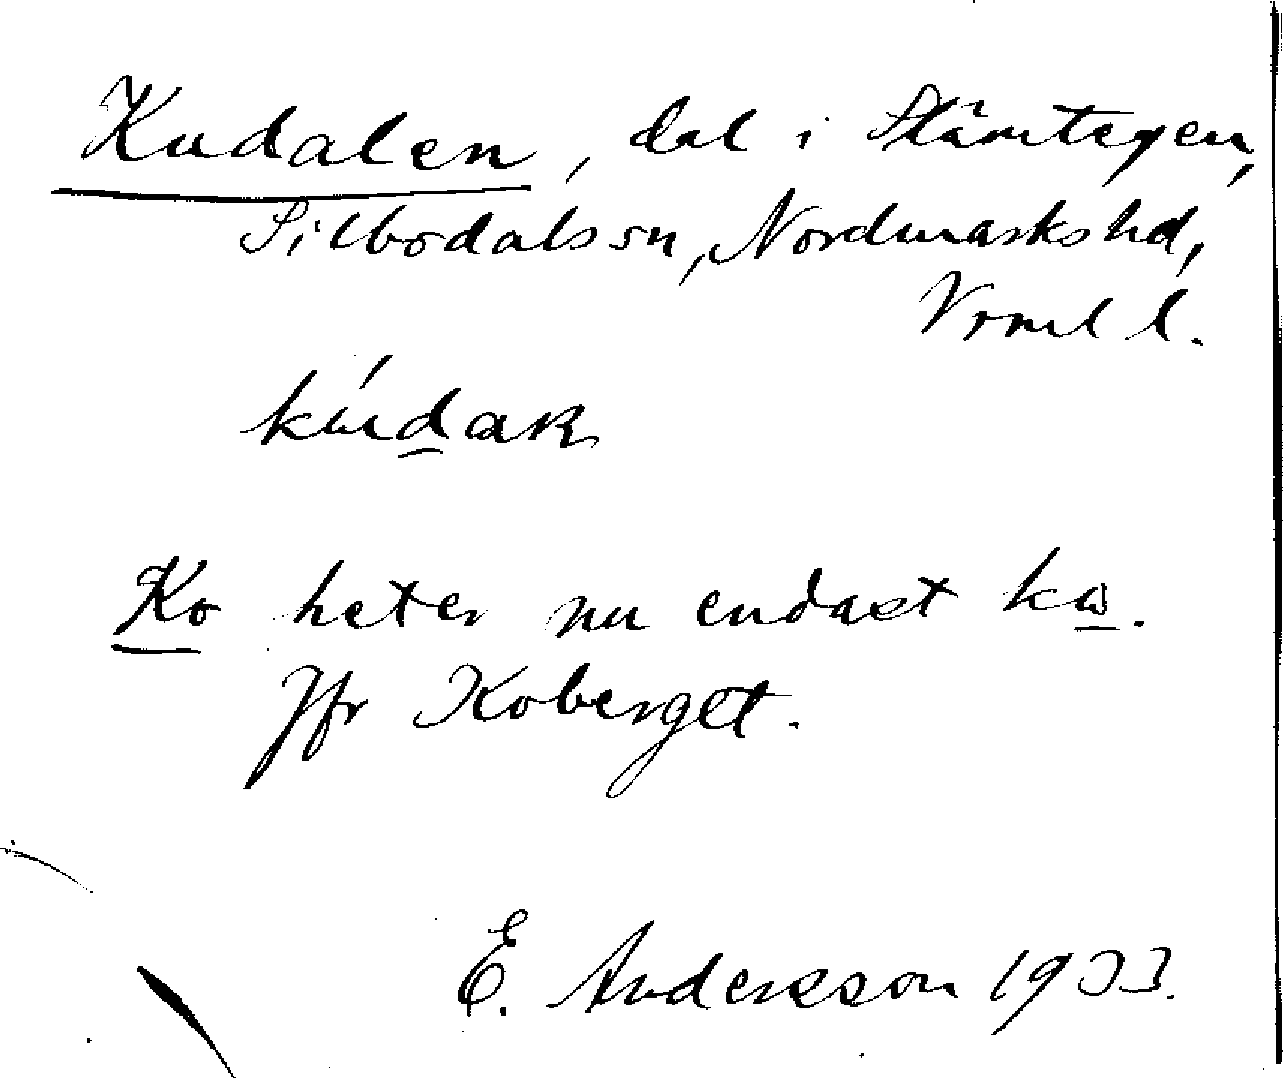 Kudalen, dal i Stämtegen,
Silbodals sn, Nordmarks hd,
Vrml l.
Ko heter nu endast
Jfr Koberget.
E. Andersson 1933.